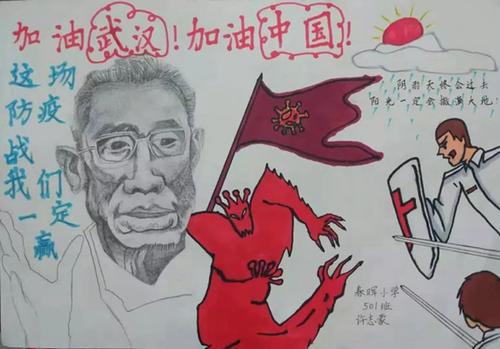 加油武汉!加油中国!
这场
防疫
战
我们
一定
赢
阴雨天终会过去
阳光一定会撒满大地
春晖小学
501班
许志豪